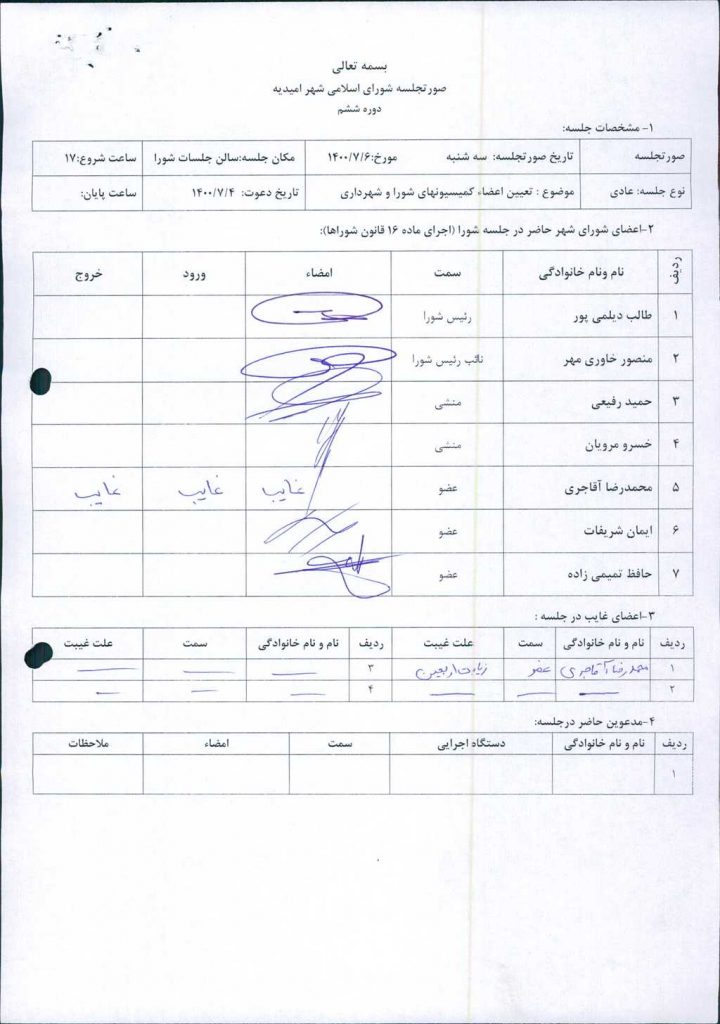 بسمه تعالی
صورتجلسه شورای اسلامی شهر امیدیه
دوره ششم
۱- مشخصات جلسه:
صورتجلسه تاریخ صورتجلسه: سه شنبه مورخ:۱۴۰۰/۷/۶ مکان جلسه:سالن جلسات شورا ساعت شروع:۱۷
نوع جلسه: عادی موضوع : تعیین اعضاء کمیسیونهای شورا و شهرداری تاریخ دعوت: ۱۴۰۰/۷/۴ ساعت پایان:
۲-اعضای شورای شهر حاضر در جلسه شورا (اجرای ماده ۱۶ قانون شوراها):
ردیف نام ونام خانوادگی سمت امضاء ورود خروج
۱ طالب دیلمی پور رئیس شورا
۲ منصور خاوری مهر نائب رئیس شورا
۳ حمید رفیعی منشی
۴ خسرو مرویان منشی
۵ محمدرضا آقاجری عضو غایب غایب غایب
۶ ایمان شریفات عضو
۷ حافظ تمیمی زاده عضو
۳-اعضای غایب در جلسه :
ردیف نام و نام خانوادگی سمت علت غیبت ردیف نام و نام خانوادگی سمت علت غیبت
۱ محمدرضا آقاجری عضو زیارت اربعین ۳
۲ ۴
۴-مدعوین حاضر درجلسه:
ردیف نام و نام خانوادگی دستگاه اجرایی سمت امضاء ملاحظات
۱